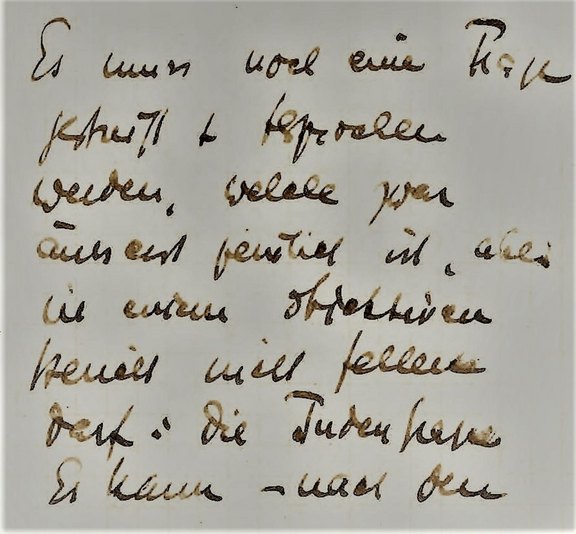 Es muss noch eine Frage
gestreift & besprochen
werden, welche zwar
äusserst peinlich ist, aber
in einem objektiven
Bericht nicht fehlen
darf: die Judenfrage
Es kann – nach den